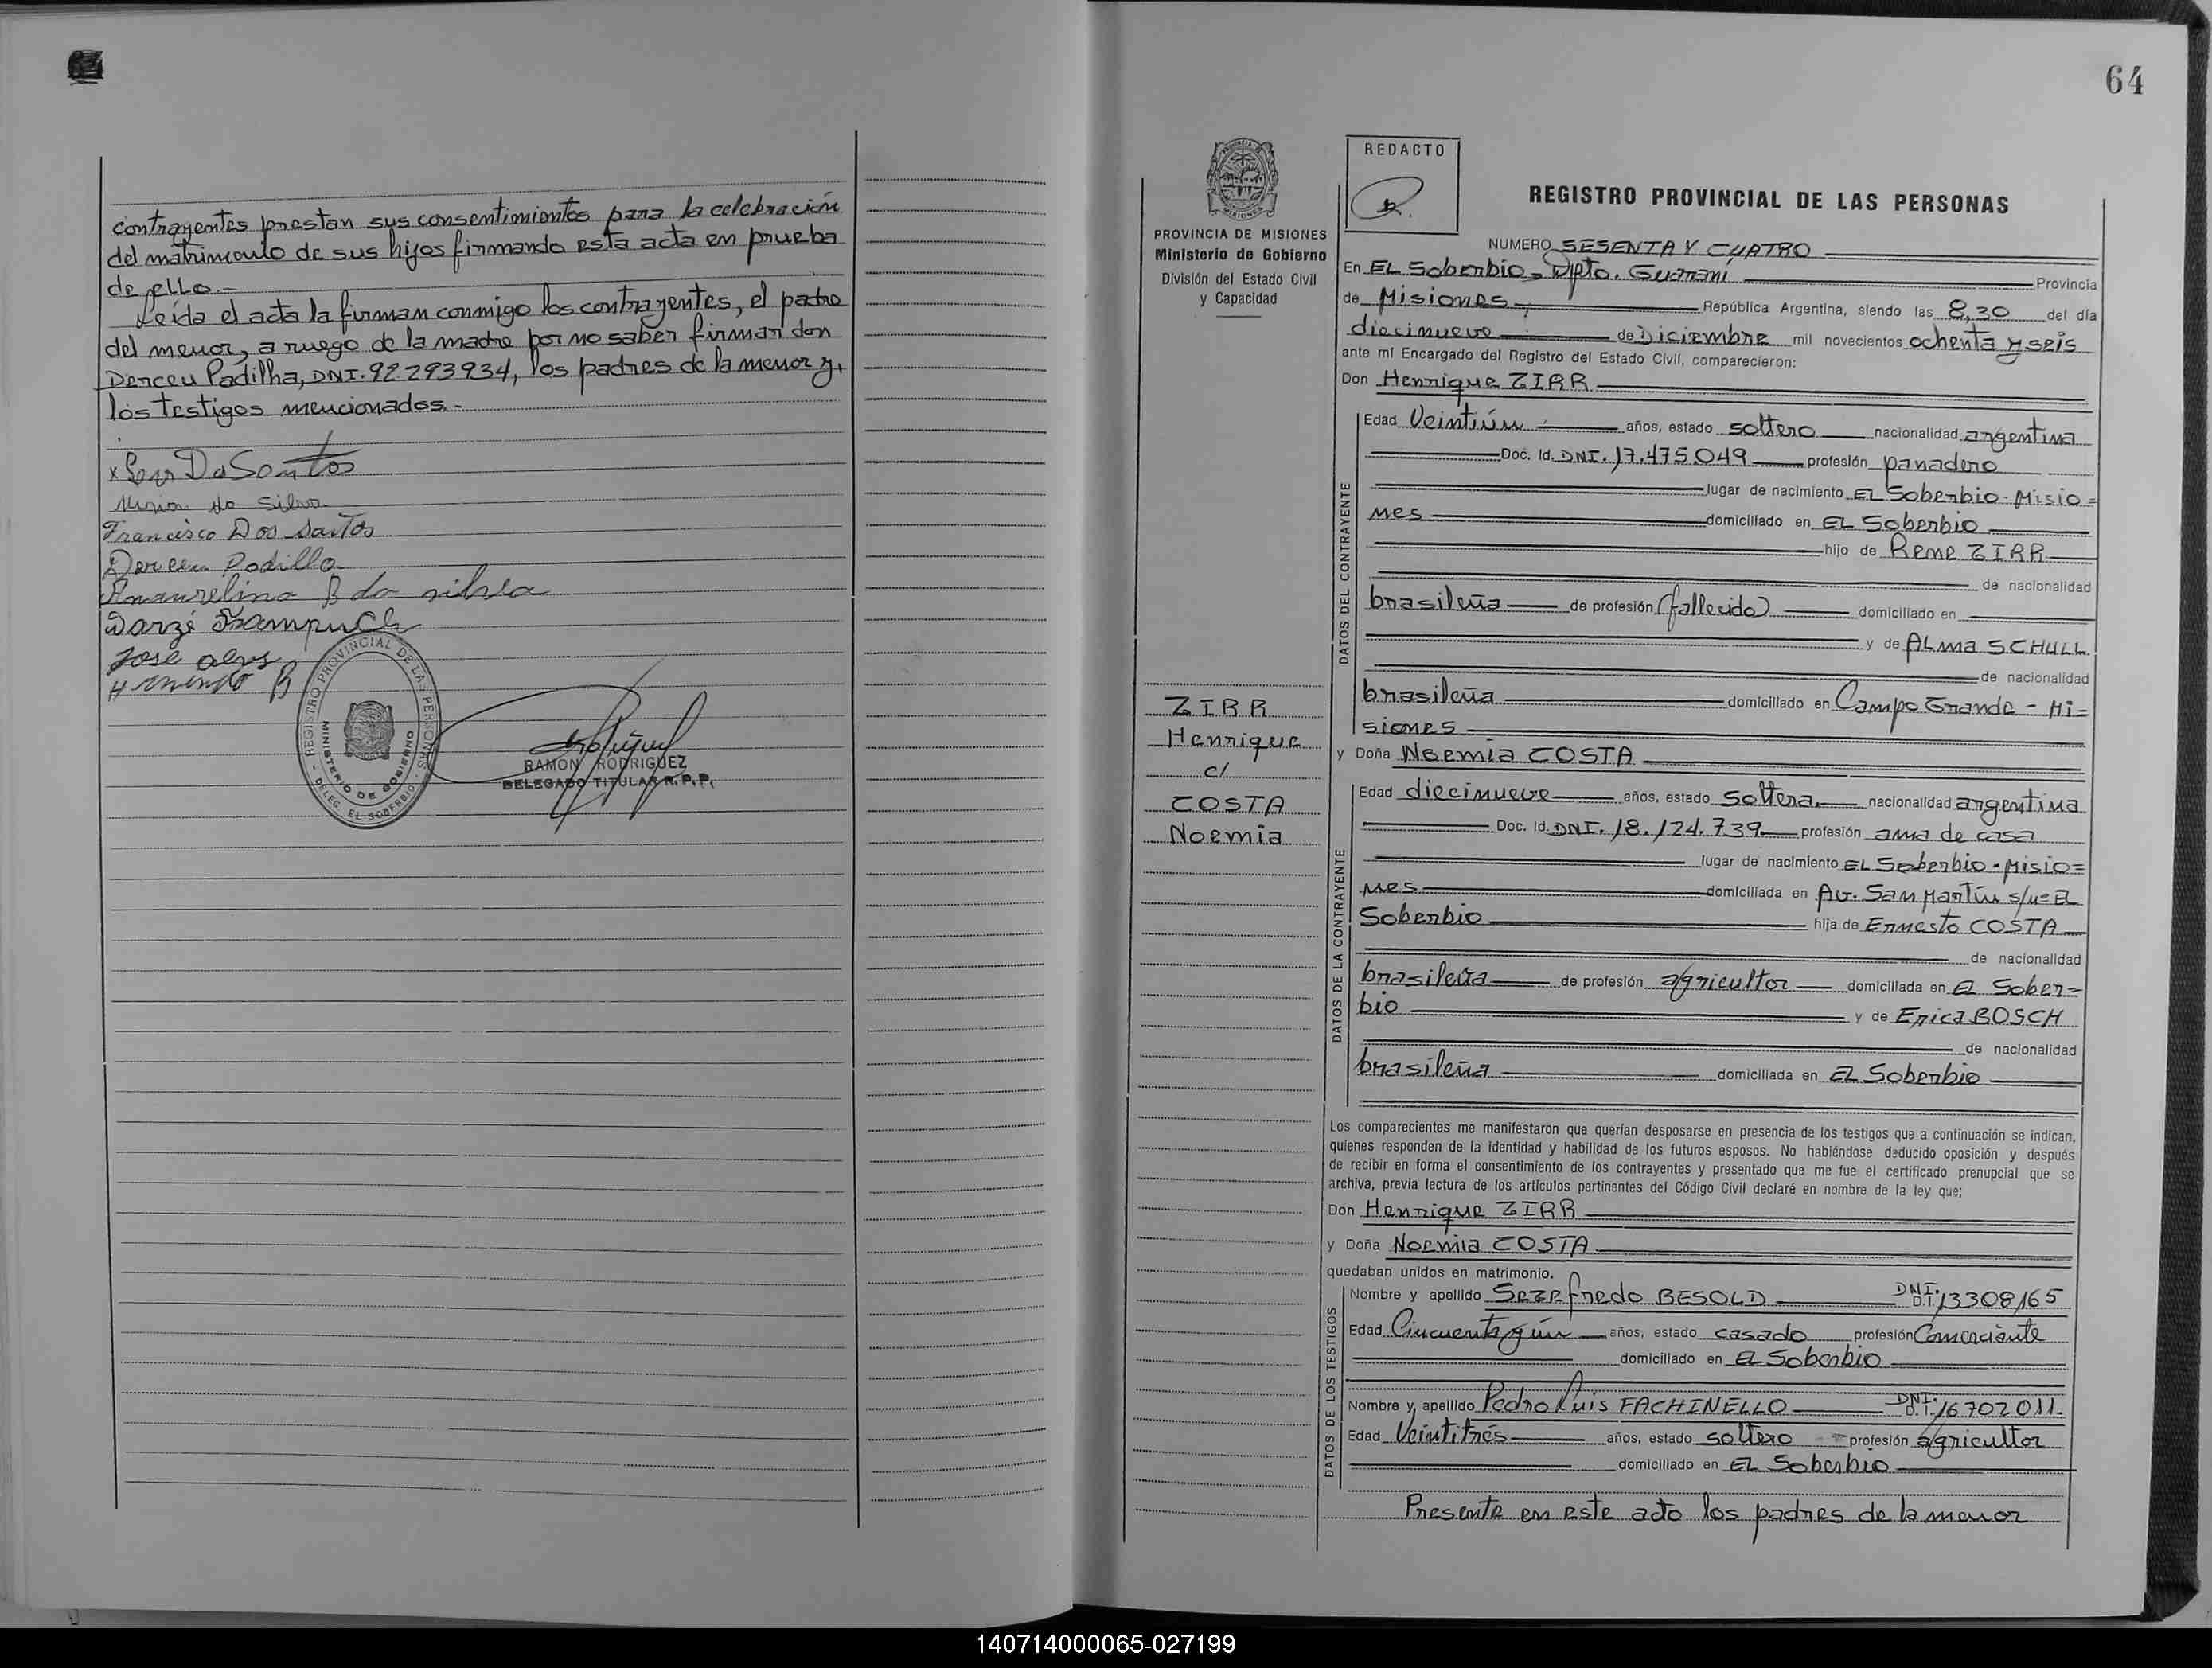 contrayentes prestan sus consentimientos para la celebración
del matrimonio de sus hijos firmando esta acta en prueba
de ello.-
Leída el acta la firman conmigo los contrayentes, el padre
del menor, a ruego de la madre por no saber firmar don
Derceu Padilha, DNI. 92.293.934, los padres de la menor y,
los testigos mencionados.-
x Da Santos
Francisco Dos Santos
Derceu Padilla
B da silva
Jose
REGISTRO PROVINCIAL DE LAS PERSONAS
MINISTERIO DE GOBIERNO
DELEG. EL SOBERBIO
RAMON RODRIGUEZ
DELEGADO TITULAR R.P.P.
64
PROVINCIA DE MISIONES
Ministerio de Gobierno
División del Estado Civil
y Capacidad
REDACTO
REGISTRO PROVINCIAL DE LAS PERSONAS
NUMERO SESENTA Y CUATRO
En EL Soberbio - Dpto. Guaraní Provincia
de Misiones República Argentina, siendo las 8,30 del día
diecinueve de Diciembre mil novecientos ochenta y seis
ante mí Encargado del Registro del Estado Civil, comparecieron:
Don Henrique ZIRR
DATOS DEL CONTRAYENTE
Edad Veintiún años, estado soltero nacionalidad argentina
Doc. Id. DNI. 17.475.049 profesión panadero
lugar de nacimiento EL Soberbio - Misio=
nes domiciliado en EL Soberbio
hijo de Rene ZIRR
de nacionalidad
brasileña de profesión (fallecido) domiciliado en
y de Alma SCHULL
de nacionalidad
brasileña domiciliado en Campo Grande - Mi=
siones
ZIRR
Henrique
c/
COSTA
Noemia
y Doña Noemia COSTA
DATOS DE LA CONTRAYENTE
Edad diecinueve años, estado soltera nacionalidad argentina
Doc. Id. DNI. 18.124.739 profesión ama de casa
lugar de nacimiento EL Soberbio - Misio=
nes domiciliada en Av. San Martín s/nº EL
Soberbio hija de Ernesto COSTA
de nacionalidad
brasileña de profesión agricultor domiciliada en El Sober=
bio y de Erica BOSCH
de nacionalidad
brasileña domiciliada en EL Soberbio
Los comparecientes me manifestaron que querían desposarse en presencia de los testigos que a continuación se indican,
quienes responden de la identidad y habilidad de los futuros esposos. No habiéndose deducido oposición y después
de recibir en forma el consentimiento de los contrayentes y presentado que me fue el certificado prenupcial que se
archiva, previa lectura de los artículos pertinentes del Código Civil declaré en nombre de la ley que;
Don Henrique ZIRR
y Doña Noemia COSTA
quedaban unidos en matrimonio.
DATOS DE LOS TESTIGOS
Nombre y apellido BESOLD DNI. D.I. 13308165
Edad Cincuenta y un años, estado casado profesión Comerciante
domiciliado en EL Soberbio
Nombre y apellido Pedro Luis FACHINELLO DNI. D.I. 16702011
Edad Veintitrés años, estado soltero profesión agricultor
domiciliado en EL Soberbio
Presente en este acto los padres de la menor
140714000065-027199